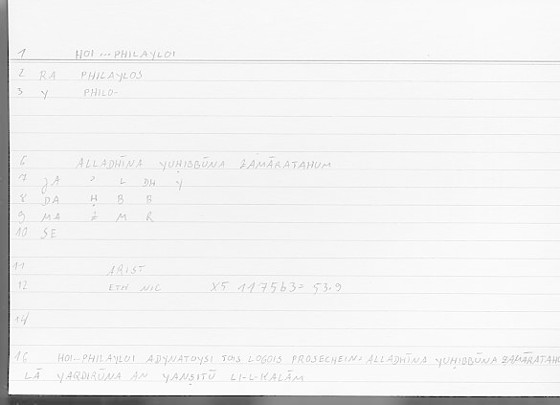 1 HOI ... PHILAYLOI
2 RA PHILAYLOS
3 Y PHILO-
6 ALLADHĪNA YUḤIBBŪNA ZAMĀRATAHUM
7 JA ʾ L DH Y
8 DA Ḥ B B
9 MA Z M R
10 SE
11 ARIST
12 ETH NIC X5 1175b3= 53.9
14
16 HOI-PHILAYLOI ADYNATOYSI TOIS LOGOIS PROSECHEIN= ALLADHĪNA YUḤIBBŪNA ZAMĀRATAHU
LĀ YAQDIRŪNA AN YANṢITŪ LI-L-KALĀM